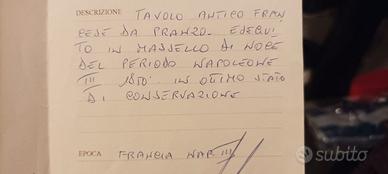 DESCRIZIONE TAVOLO ANTICO FRAN
CESE DA PRANZO. ESEGUI
TO IN MASSELLO DI NOCE
DEL PERIODO NAPOLEONE
III 1850. IN OTTIMO STATO
DI CONSERVAZIONE
EPOCA FRANCIA NAP III
subito